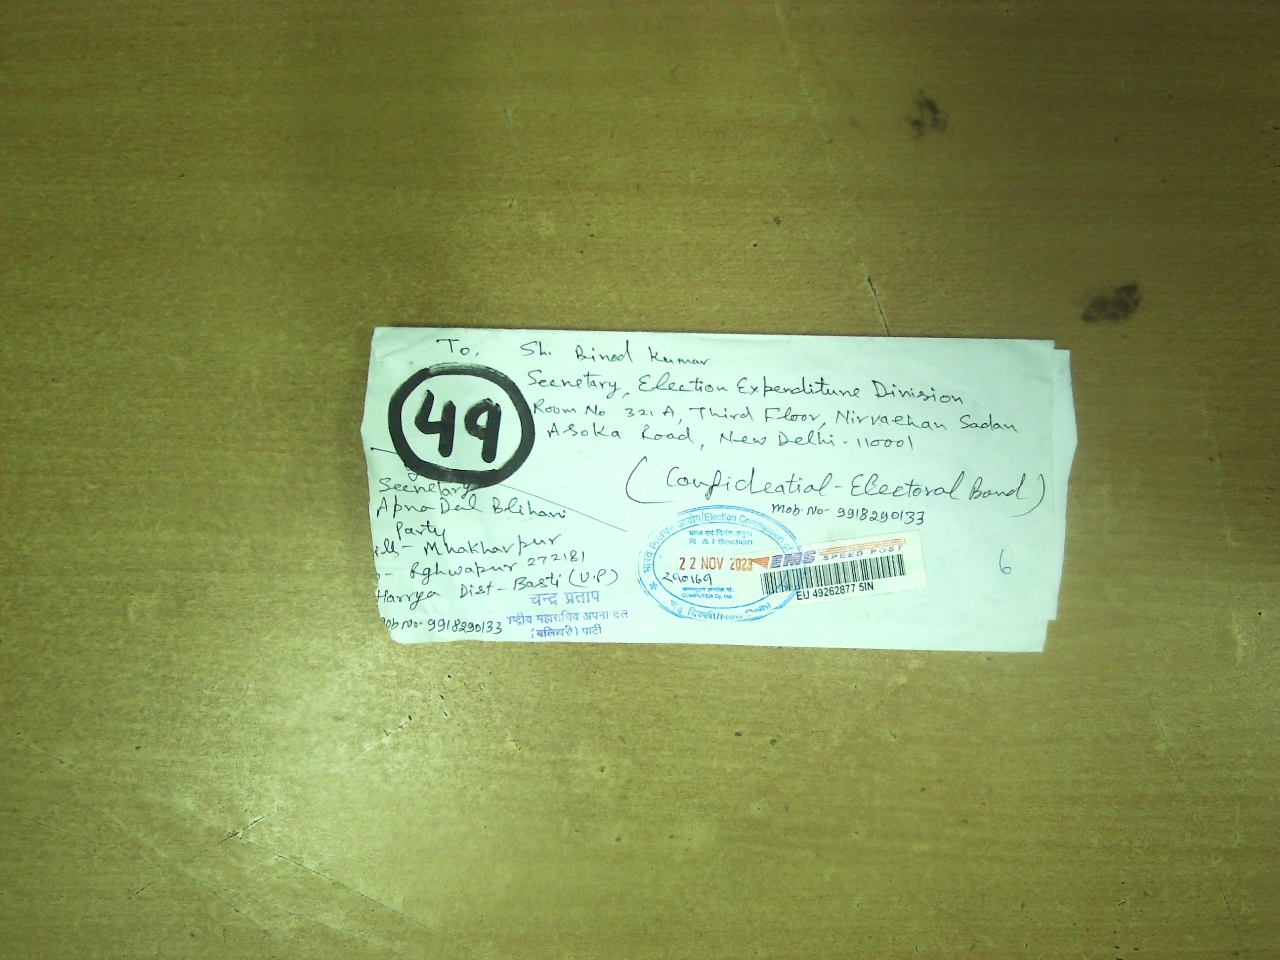 To, Sh. Binod Kumar
Secretary, Election Expenditure Division
Room No 321 A, Third Floor, Nirvachan Sadan
Asoka Road, New Delhi - 110001
49
(Confidential - Electoral Bond)
Mob No- 9918290133
Secretary
Apna Dal Blihari
Party
Mhakharpur
Rghwapur 272181
Harrya Dist - Basti (U.P)
Mob No- 9918290133
चन्द्र प्रताप
राष्ट्रीय महासचिव अपना दल
(बलिहारी) पार्टी
Election Commission of
R & I Section
22 NOV 2023
290169
COMPUTER Dy. No.
नई दिल्ली/New Delhi
EMS SPEED POST
EU 49262877 5IN
6